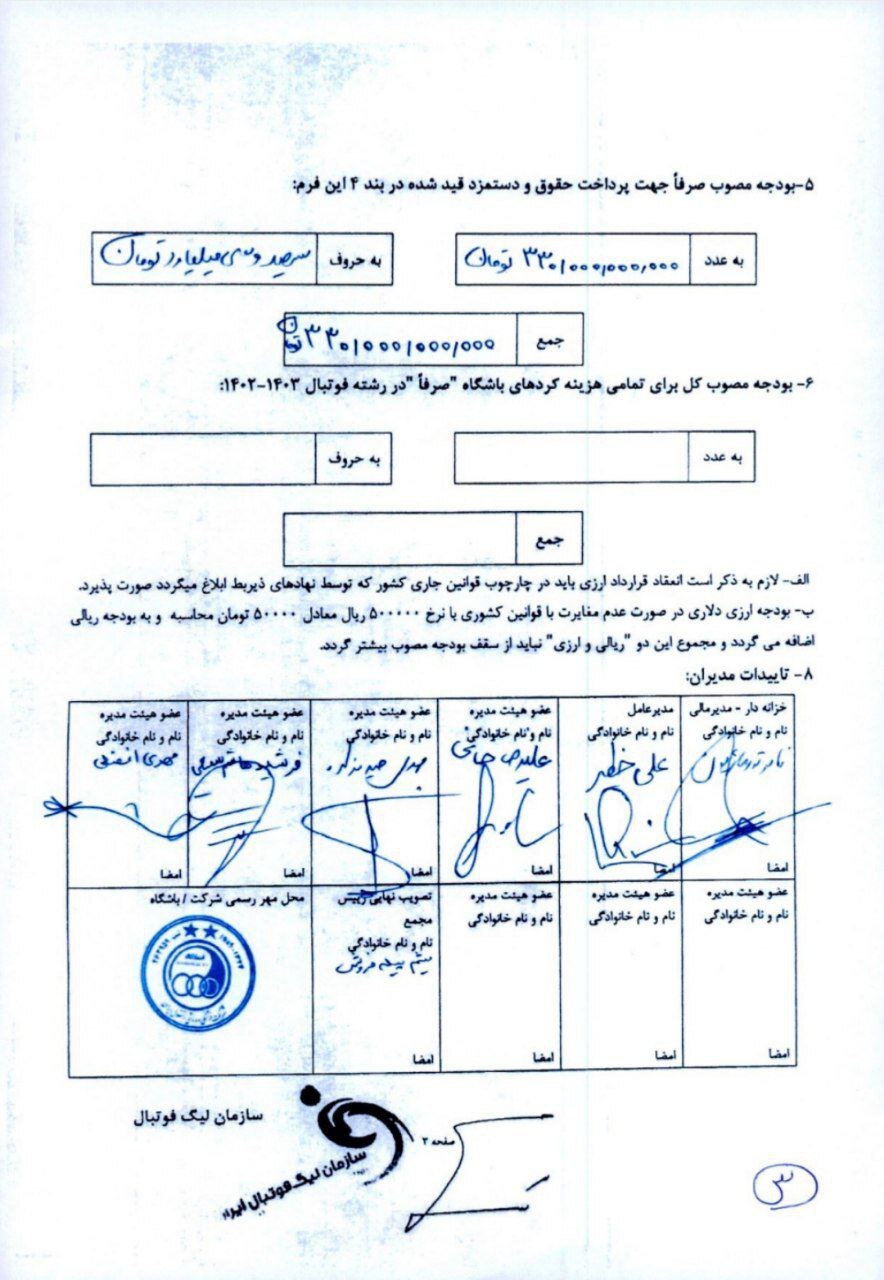 ۵-بودجه مصوب صرفاً جهت پرداخت حقوق و دستمزد قید شده در بند ۴ این فرم:
به عدد ۳۳۰/۰۰۰/۰۰۰/۰۰۰ تومان به حروف سیصد و سی میلیارد تومان
جمع ۳۳۰/۰۰۰/۰۰۰/۰۰۰ تومان
۶- بودجه مصوب کل برای تمامی هزینه کردهای باشگاه "صرفاً "در رشته فوتبال ۱۴۰۳-۱۴۰۲:
به عدد به حروف
جمع
الف- لازم به ذکر است انعقاد قرارداد ارزی باید در چارچوب قوانین جاری کشور که توسط نهادهای ذیربط ابلاغ میگردد صورت پذیرد.
ب- بودجه ارزی دلاری در صورت عدم مغایرت با قوانین کشوری با نرخ ۵۰۰۰۰۰ ریال معادل ۵۰۰۰۰ تومان محاسبه و به بودجه ریالی
اضافه می گردد و مجموع این دو "ریالی و ارزی" نباید از سقف بودجه مصوب بیشتر گردد.
۸- تاییدات مدیران:
خزانه دار - مدیرمالی مدیرعامل عضو هیئت مدیره عضو هیئت مدیره عضو هیئت مدیره عضو هیئت مدیره
نام و نام خانوادگی نام و نام خانوادگی نام و نام خانوادگی نام و نام خانوادگی نام و نام خانوادگی نام و نام خانوادگی
علی خطیر علیرضا مهدی فرشید سمیعی مهدی
امضا امضا امضا امضا امضا امضا
عضو هیئت مدیره عضو هیئت مدیره عضو هیئت مدیره تصویب نهایی رییس محل مهر رسمی شرکت / باشگاه
نام و نام خانوادگی نام و نام خانوادگی نام و نام خانوادگی مجمع
نام و نام خانوادگی
میثم
امضا امضا امضا امضا
سازمان لیگ فوتبال
صفحه ۳
سازمان لیگ فوتبال ایران
۳